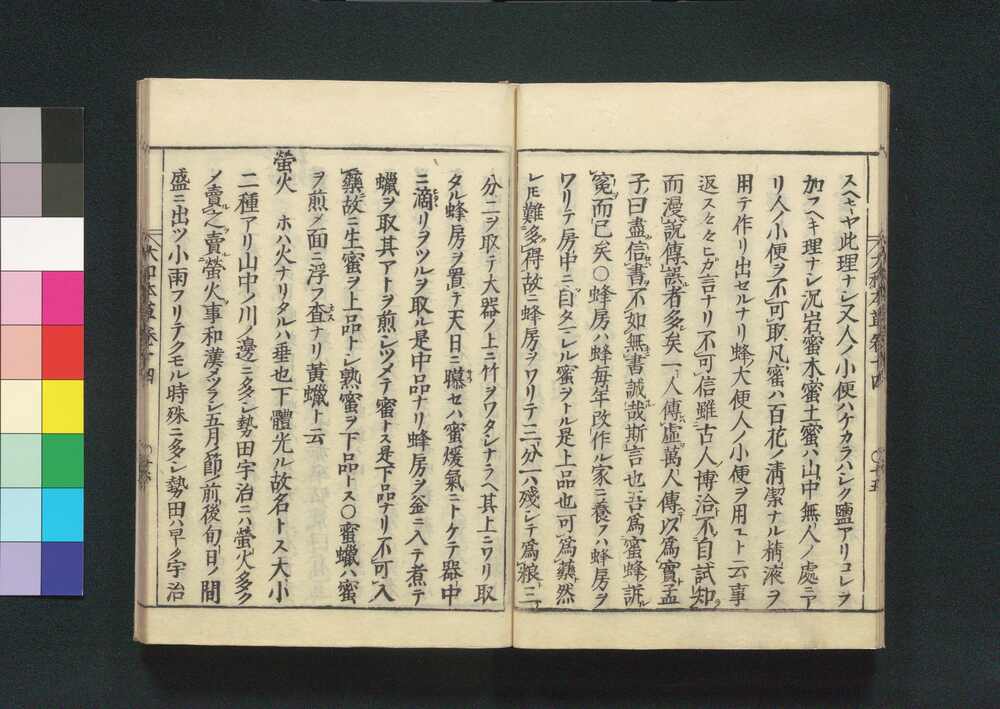 スヘキヤ此理ナシ又人ノ小便ハケカラハシク鹽アリコレヲ
加フヘキ理ナシ況岩蜜木蜜土蜜ハ山中無人ノ處ニア
リ人ノ小便ヲ不可取凡蜜ハ百花ノ淸潔ナル精液ヲ
用テ作リ出セルナリ蜂大便人ノ小便ヲ用ユト云事
返ス々々ヒガ言ナリ不可信雖古人博洽不自試知
而漫說傳誤者多矣一人傳虛萬人傳以爲實孟
子曰盡信書不如無書誠哉斯言也吾爲蜜蜂訴
寃而已矣〇蜂房ハ蜂每年改作ル家ニ養フハ蜂房ヲ
ワリテ房中ニ自タマレル蜜ヲトル是上品也可爲藥然
レ𪜈難多得故ニ蜂房ヲワリテ三分一ハ殘シテ爲粮三
分二ヲ取テ大器ノ上ニ竹ヲワタシナラヘ其上ニワリ取
タル蜂房ヲ置テ天日ニ曝セハ蜜煖氣ニトケテ器中
ニ滴リヲツルヲ取ル是中品ナリ蜂房ヲ釜ニ入テ煮テ
蠟ヲ取其アトヲ煎シツメテ蜜トス是下品ナリ不可入
藥故ニ生蜜ヲ上品トシ熟蜜ヲ下品トス〇蜜蠟ハ蜜
ヲ煎メ面ニ浮フ査ナリ黃蠟ト云
螢火 ホハ火ナリタルハ垂也下體光ル故名トス大小
二種アリ山中ノ川ノ邊ニ多シ勢田宇治ニハ螢火多ク
ノ賣之賣螢火事和漢メツラシ五月ノ節ノ前後旬日ノ間
盛ニ出ツ小雨フリテクモル時殊ニ多シ勢田ハ早ク宇治
大和本草卷十四